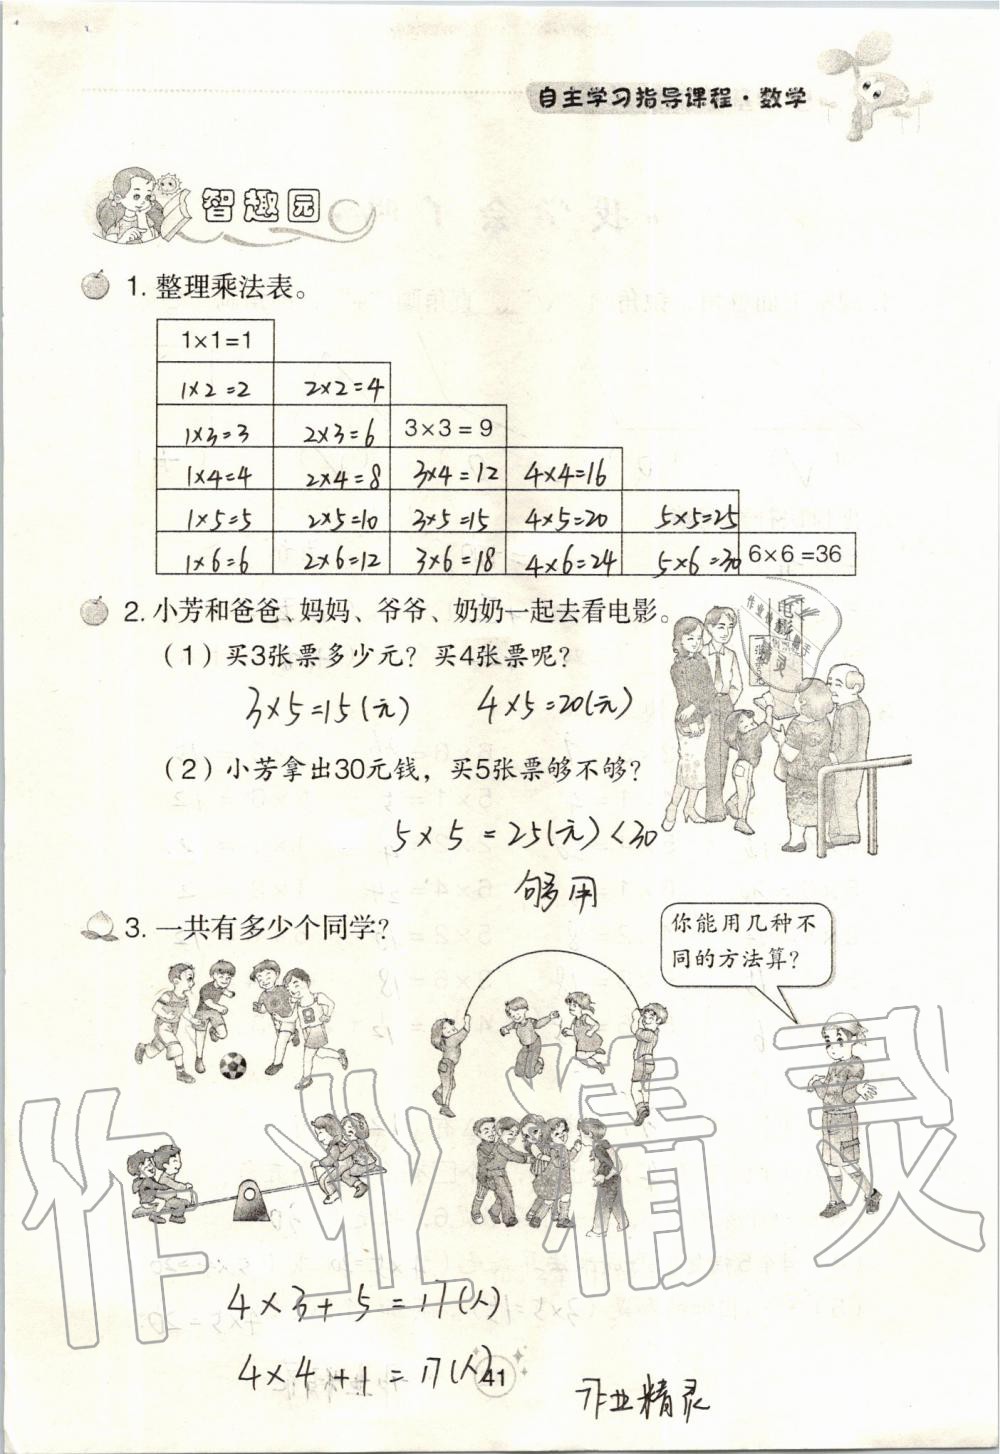 自主学习指导课程·数学
智趣园
1. 整理乘法表。
1×1=1
1×2=2 2×2=4
1×3=3 2×3=6 3×3=9
1×4=4 2×4=8 3×4=12 4×4=16
1×5=5 2×5=10 3×5=15 4×5=20 5×5=25
1×6=6 2×6=12 3×6=18 4×6=24 5×6=30 6×6=36
2. 小芳和爸爸、妈妈、爷爷、奶奶一起去看电影。
电影
（1）买3张票多少元？买4张票呢？
3×5=15(元) 4×5=20(元)
（2）小芳拿出30元钱，买5张票够不够？
5×5=25(元)<30
够用
3. 一共有多少个同学？
你能用几种不
同的方法算？
8
作业精灵
4×3+5=17(人)
4×4+1=17(人)
41
作业精灵